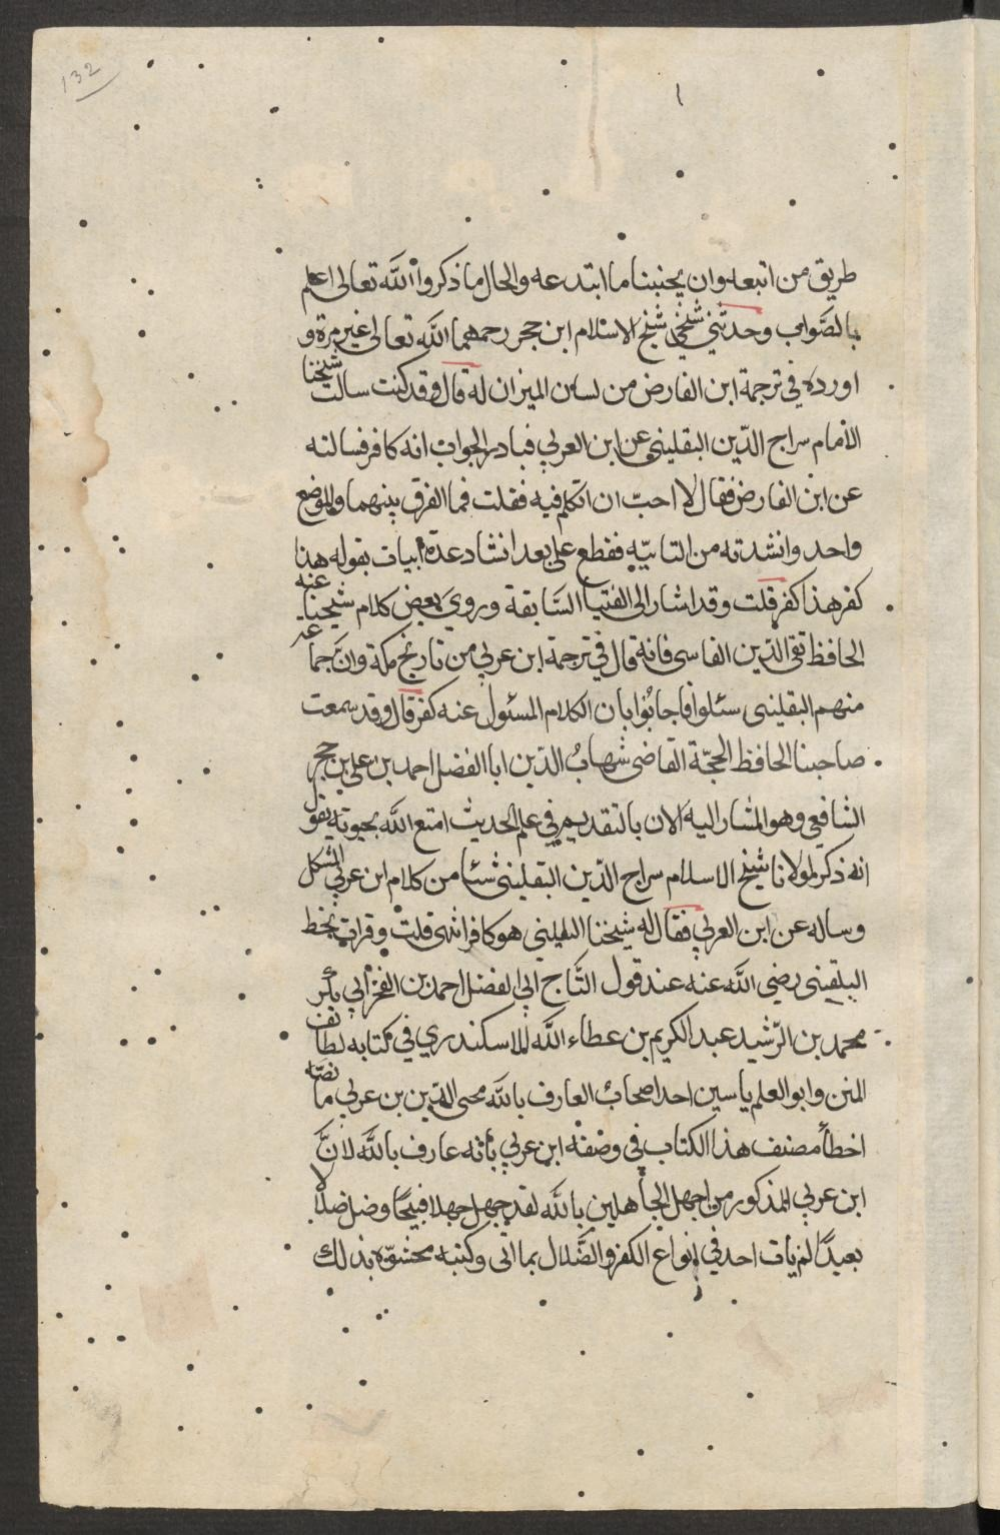 132
طريق من اتبعه وان يجنبنا ما ابتدعه والحال ما ذكروا الله تعالى اعلم
بالصواب وحدثني شيخي شيخ الاسلام ابن حجر رحمهما الله تعالى غير مرة و
اورده في ترجمة ابن الفارض من لسان الميزان له قال وقد كنت سالت شيخنا
الامام سراج الدين البقليني عن ابن العربي فبادر الجواب انه كافر فسالته
عن ابن الفارض فقال لا احب ان اتكلم فيه فقلت فما الفرق بينهما والموضع
واحد وانشدته من التائية فقطع علي بعد انشاد عدة ابيات بقوله هذا
كفر هذا كفر قلت وقد اشار الى الفتيا السابقة وروي بعض كلام شيخنا عنه
الحافظ تقي الدين الفاسي فانه قال في ترجمة ابن عربي من تاريخ مكة وان جماعة
منهم البقليني سئلوا فاجابوا بان الكلام المسئول عنه كفر قال وقد سمعت
صاحبنا الحافظ الحجة القاضي شهاب الدين ابا الفضل احمد بن علي بن حجر
الشافعي وهو المشار اليه الان بالتقديم في علم الحديث امتع الله بحيوته يقول
انه ذكر لمولانا شيخ الاسلام سراج الدين البقليني شيئا من كلام ابن عربي المشكل
وساله عن ابن العربي فقال له شيخنا البقليني هو كافر انتهى قلت وقرات بخط
البلقيني رضي الله عنه عند قول التاج ابي الفضل احمد بن الفخر ابي بكر
محمد بن الرشيد عبد الكريم بن عطاء الله للاسكندري في كتابه لطائف
المنن وابو العلم ياسين احد اصحاب العارف بالله محيي الدين بن عربي ما نصه
اخطأ مصنف هذا الكتاب في وصفه ابن عربي بانه عارف بالله لان
ابن عربي المذكور من اجهل الجاهلين بالله لقد جهل جهلا قبيحا وضل ضلالا
بعيدا لم يات احد في انواع الكفر والضلال بما اتى وكتبه محشوة بذلك